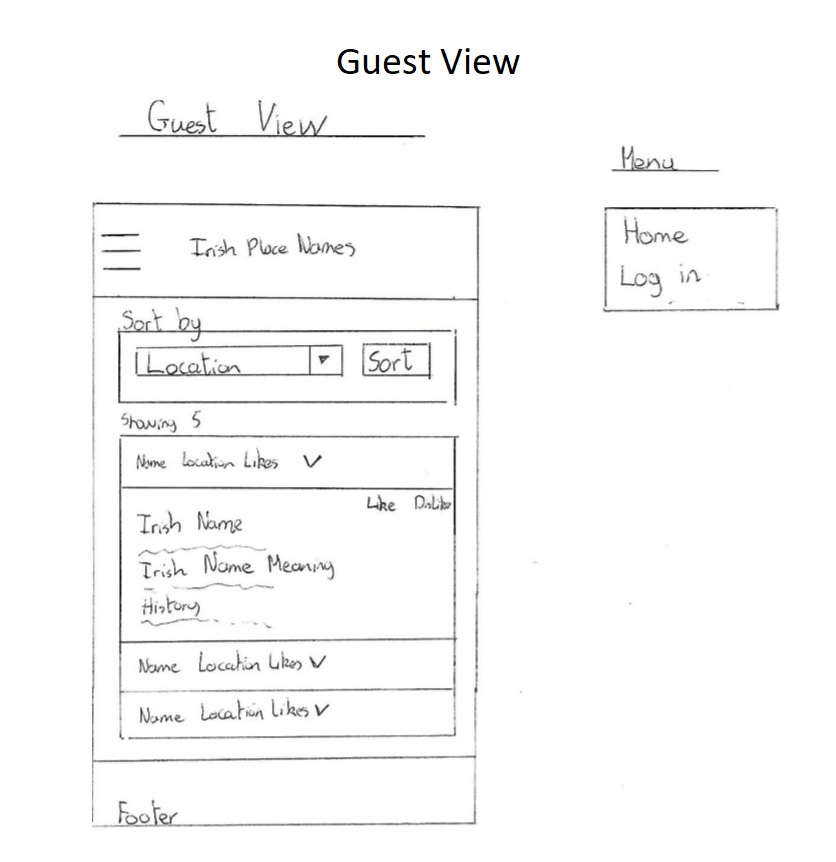 Guest View
Guest View
Menu
Home
Log in
Irish Place Names
Sort by
Location
Sort
Showing 5
Name Location Likes
Like Dislike
Irish Name
Irish Name Meaning
History
Name Location Likes
Name Location Likes
Footer